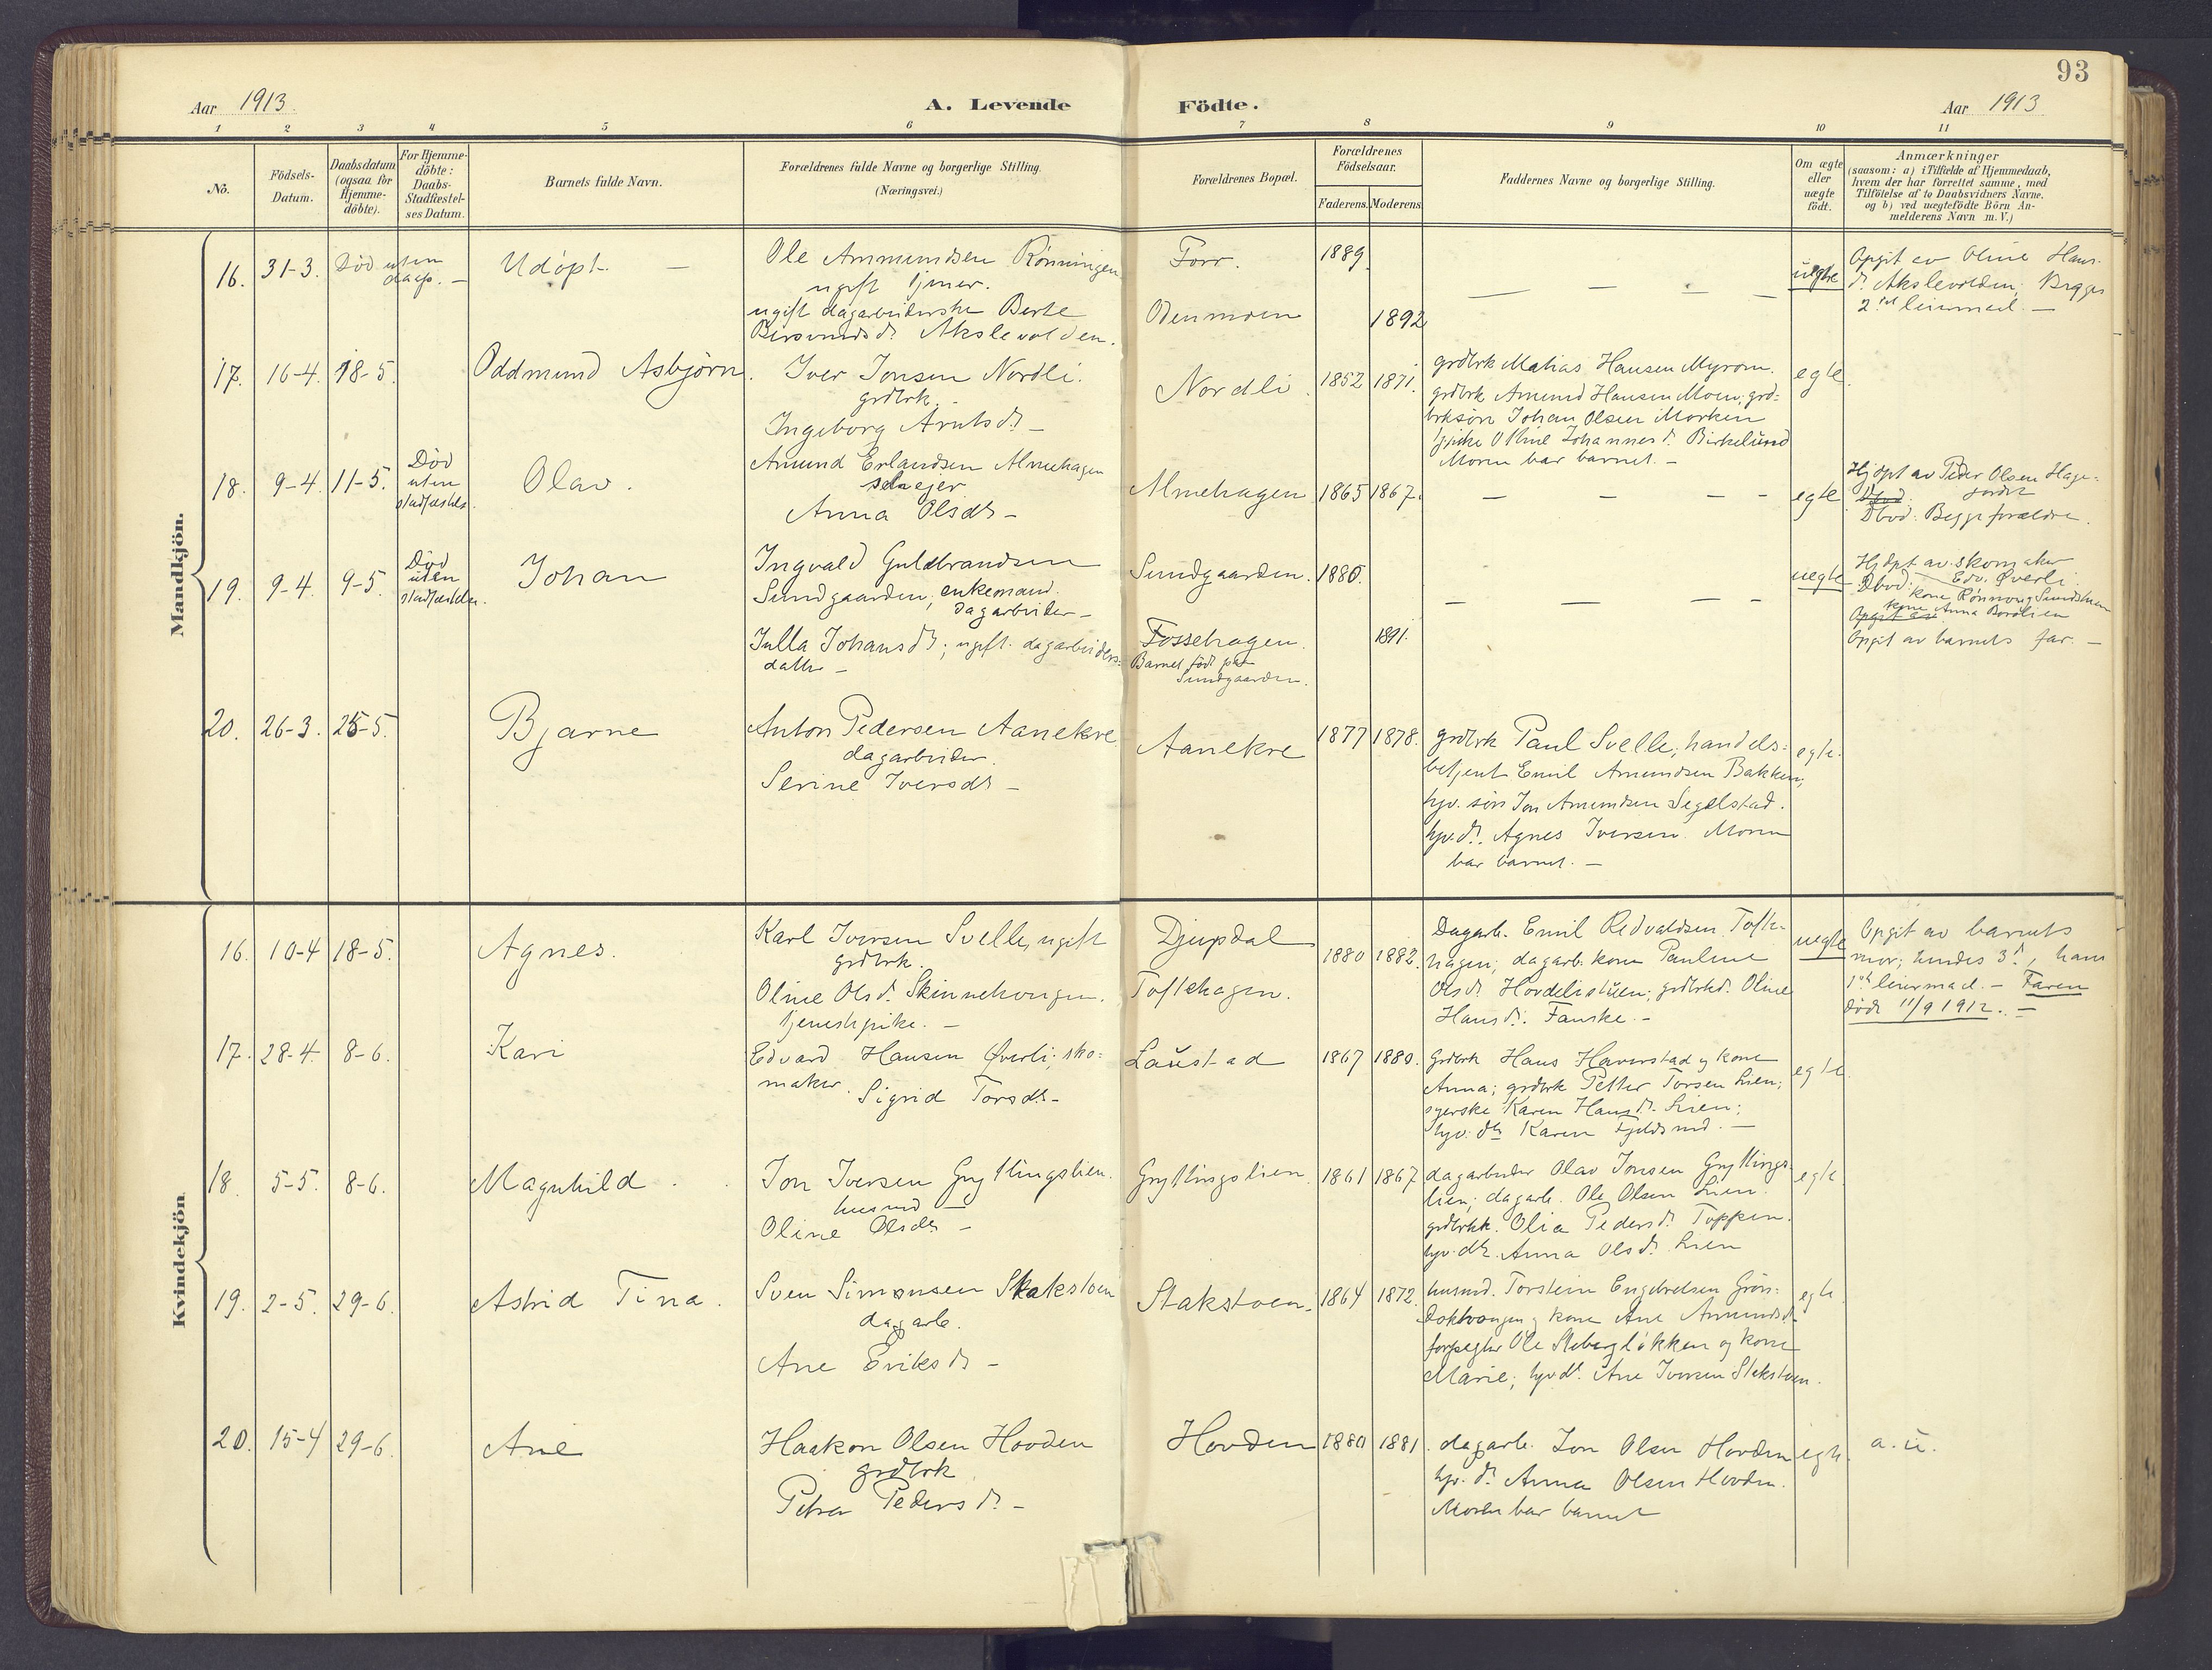 93
Aar 1913.
A. Levende Födte.
Aar 1913
1 2 3 4 5 6 7 8 9 10 11
No.
Födsels-Datum.
Daabsdatum (ogsaa for Hjemme-döbte).
For Hjemme-döbte: Daabs-Stadfæstel-ses Datum.
Barnets fulde Navn.
Forældrenes fulde Navne og borgerlige Stilling.
(Næringsvei.)
Forældrenes Bopæl.
Forældrenes Födselsaar.
Faderens. Moderens.
Faddernes Navne og borgerlige Stilling.
Om ægte eller uægte födt.
Anmærkninger
(saasom: a) i Tilfælde af Hjemmedaab,
hvem der har forrettet samme, med
Tilföielse af to Daabsvidners Navne,
og b) ved uægtefödte Börn An-
melderens Navn m. V.)
Mandkjön.
16. 31-3. Död uten daap. — Udöpt. —
Ole Ammundsen Rönningen
ugift tjener.
ugift dagarbeiderske Berte
Akslevolden.
Forr. 1889
Odenmoen 1892
— — — —
uegte
Opgit av Oline Hans-
d. Akslevolden; Begges
2det leiermaal. —
17. 16-4. 18-5. Oddmund Asbjörn.
Iver Jonsen Nordli.
grdbrk.
Ingeborg Arntsdr —
Nordli. 1852 1871.
grdbrk Matias Hansen Myrom.
grdbrk Amund Hansen Moen, grd-
brksön Johan Olsen Morken
Oline Johannesd. Birkelund
Moren bar barnet. —
egte.
18. 9-4. 11-5. Död uten stadfæstels. Olav.
Amund Erlandsen Almehagen
selveier
Anna Olsdr —
Almehagen 1865 1867.
— — — —
egte
Hjdpt av Peder Olsen Hage-
jordet
Dbvd: Begge forældre.
19. 9-4. 9-5. Död uten stadfæstelse. Johan
Ingvald Guldbrandsen
Sundgaarden, enkemand.
dagarbeider —
Julla Johansdr; ugift. dagarbeiders-
datter —
Sundgaarden. 1886.
Fossehagen. 1891.
Barnet födt paa
Sundgaarden.
— — — —
uegte
Hjdpt av skomaker
Edv. Øverli.
Dbvd: kone Rönnoug Sundstuen
kone Anna Boroliien
Opgit av
Opgit av barnets far. —
20. 26-3. 25-5. Bjarne
Anton Pedersen Aanekre
dagarbeider.
Serine Iversdr —
Aanekre 1877 1878.
grdbrk Paul Svelle, handels-
betjent Emil Amundsen Bakken,
hjv. sön Jon Amundsen Segelstad.
hjv. d. Agnes Iversen. Moren
bar barnet. —
egte.
Kvindekjön
16. 10-4 18-5. Agnes.
Karl Iversen Svelle, ugift
grdbrk.
Oline Olsd. Skinnehougen.
tjenestepike. —
Djupdal 1880 1882.
Toftehagen.
Dagarb. Emil Redvaldsen Tofte-
hagen; dagarb. kone Pauline
Olsd. Hovdelistuen; grdbrkd. Oline
Hansd. Fauske. —
uegte
Opgit av barnets
mor; hendes 3d, hans
1ste leiermaal. — Faren
död 11/9 1912. —
17. 28-4. 8-6. Kari
Edvard Hansen Øverli; sko-
maker.
Sigrid Torsdr. —
Laustad 1867 1880.
Grdbrk Hans Haverstad og kone
Anna; grdbrk Petter Torsen Lien;
syerske Karen Hansd. Lien;
hjv. dtr Karen —
egte.
18. 5-5. 8-6. Magnhild.
Jon Iversen Gryttingslien.
husmd —
Oline Olsdtr —
Gryttingslien 1861 1867
dagarbeider Olav Jonsen Gryttings-
lien; dagarb. Ole Olsen Lien.
grdbrkk. Olia Pedersd. Toppen.
hjv. dtr. Anna Olsd. Lien
egte.
19. 2-5. 29-6. Astrid Tina.
Sven Simonsen Stakstoen
dagarb.
Ane Eriksdr —
Stakstoen. 1864 1872.
husmd. Torstein Engebretsen Grön-
og kone Ane Amundsd.
forpagter Ole Stebergløkken og kone
Marie; hjvdtr. Ane Iversen Stakstoen.
egte.
20. 15-4 29-6. Ane
Haakon Olsen Hovden
grdbrk
Petra Pedersd. —
Hovden 1880 1881.
dagarb. Jon Olsen Hovden
hjv. d. Anna Olsen Hovden.
Moren bar barnet
egte.
a. u.